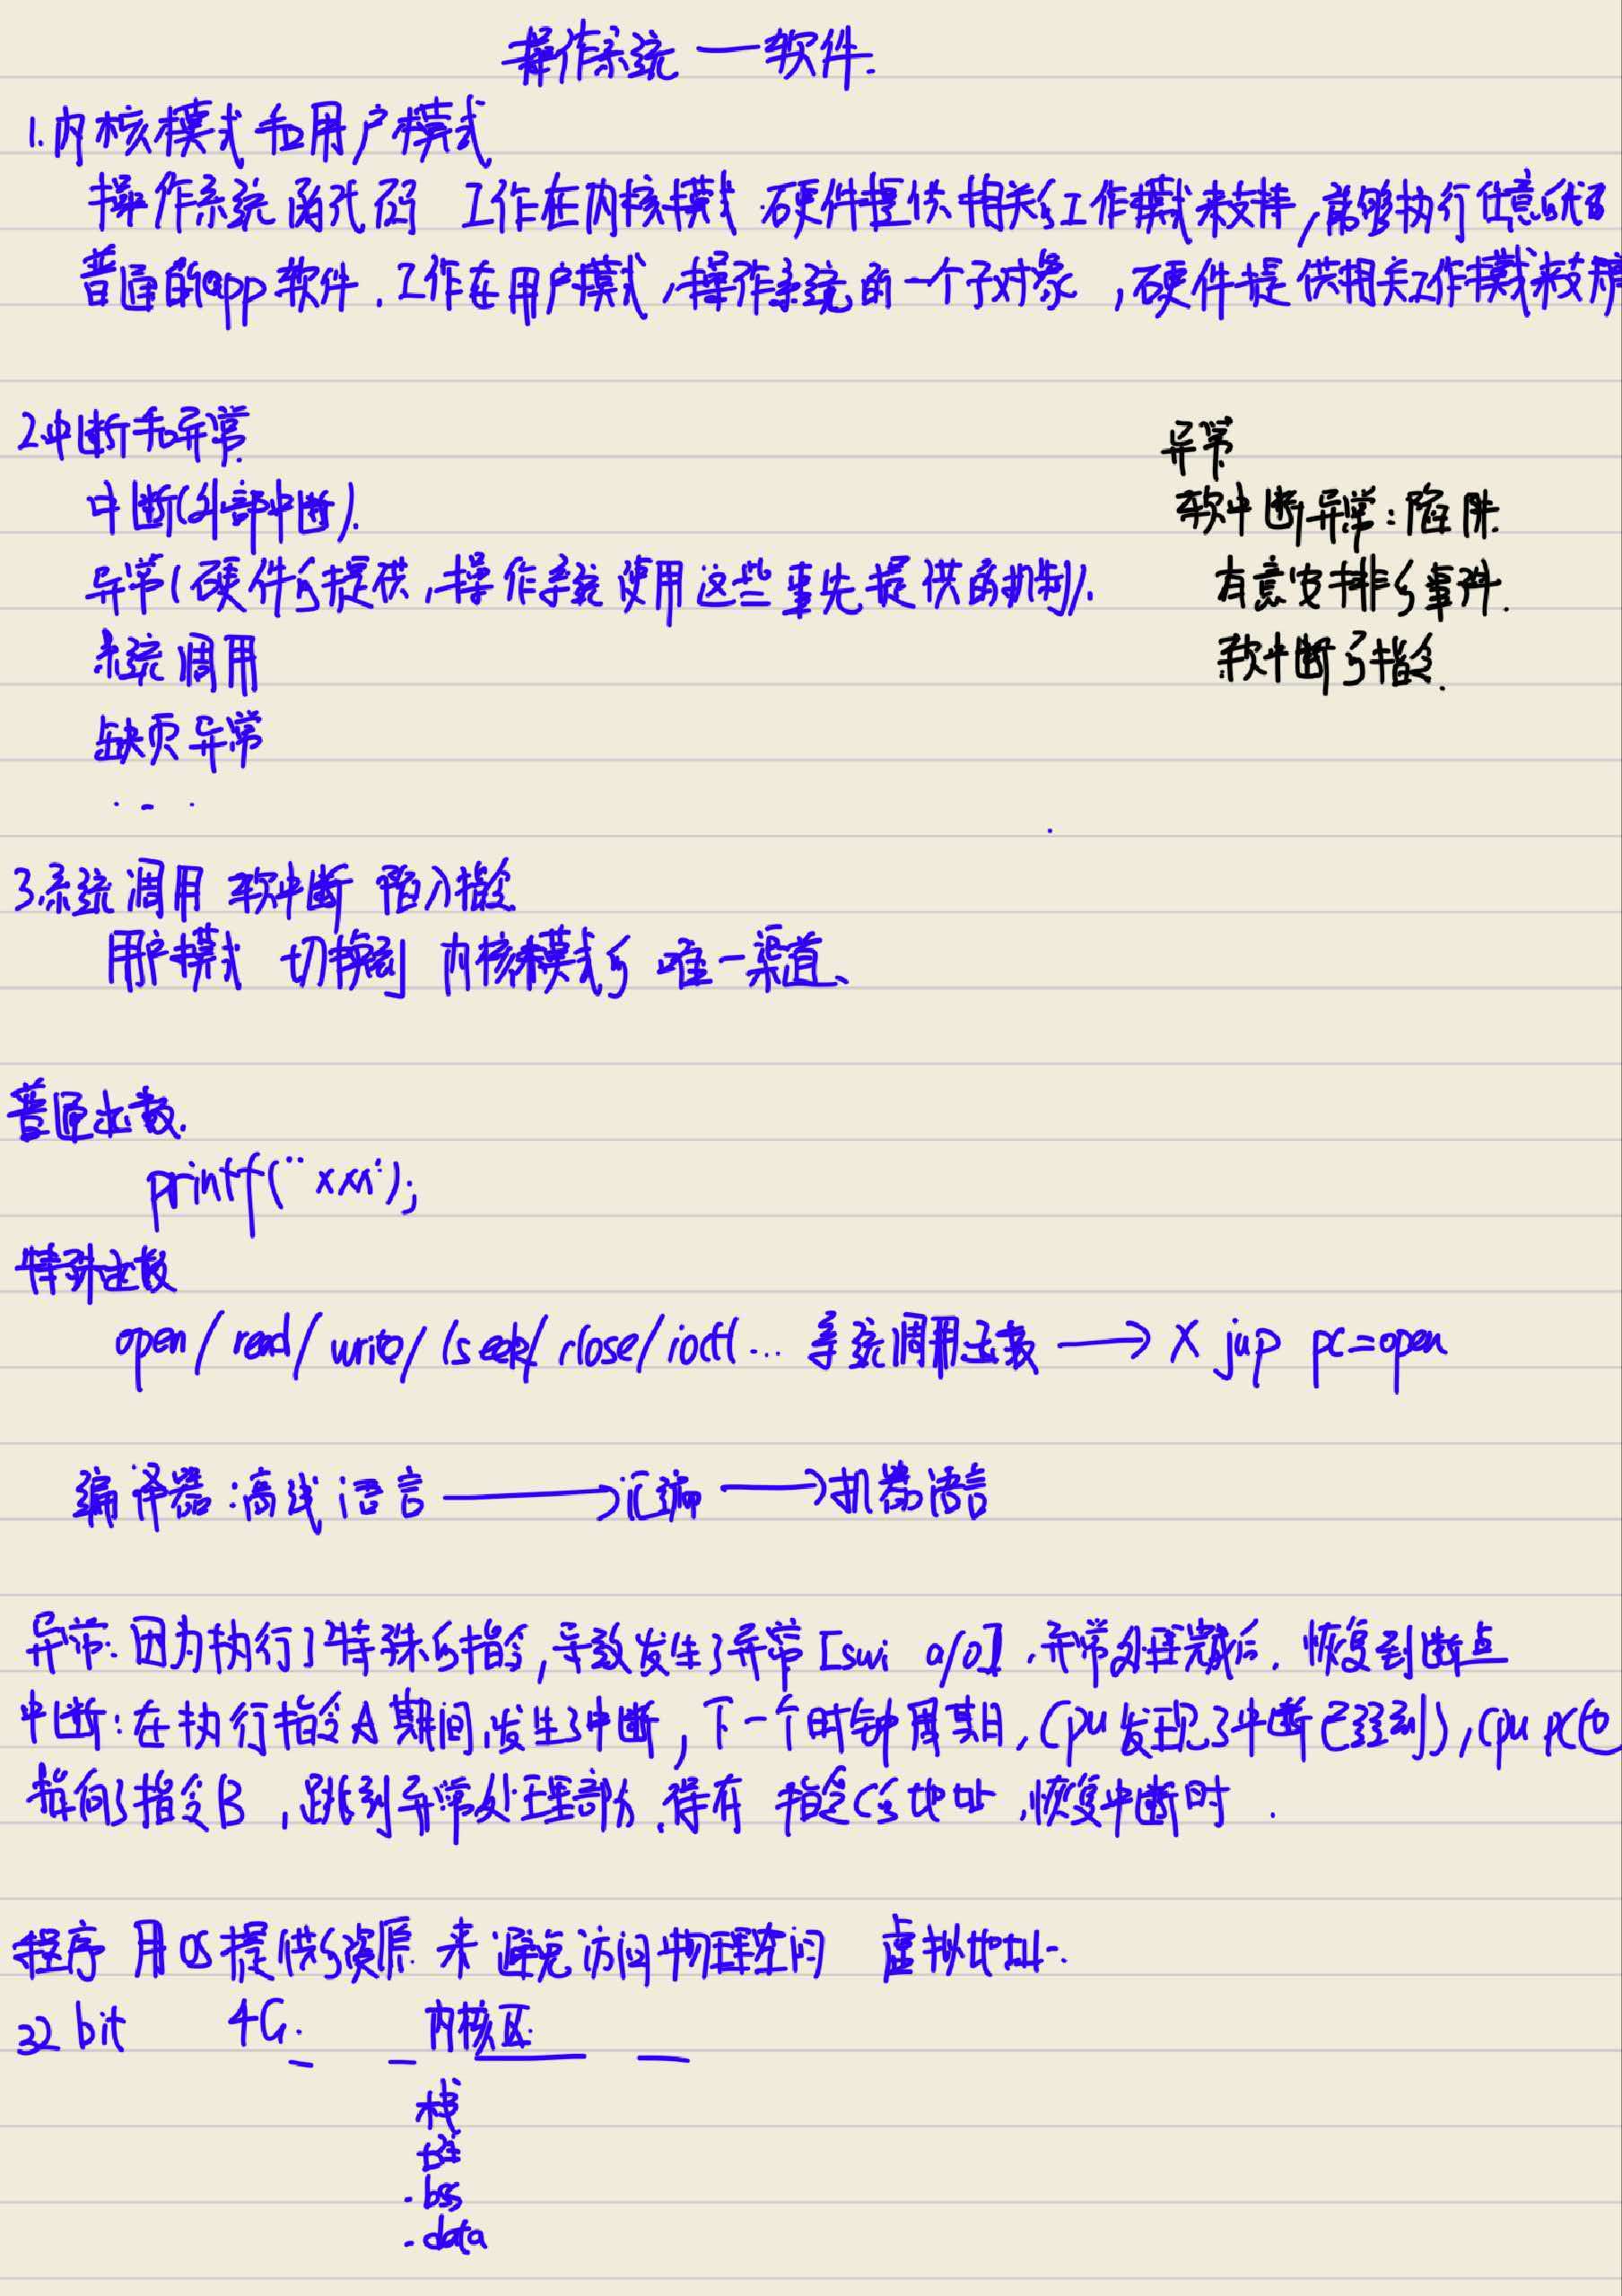 操作系统 — 软件.
1.内核模式和用户模式
操作系统的代码 工作在内核模式.硬件提供相关的工作模式来支持,能够执行任意的代码
普通的app软件.工作在用户模式,操作系统的一个子对象,硬件提供相关工作模式来支撑
2.中断和异常.
中断(外部中断).
异常(硬件的提供,操作系统使用这些事先提供的机制).
系统调用
缺页异常
...
异常
软中断异常:陷阱.
有意安排的事件.
软中断的指令.
3.系统调用 软中断 陷入指令
用户模式 切换到 内核模式的 唯一渠道、
普通函数.
printf("xxx");
特殊函数
open/read/write/lseek/close/ioctl... 系统调用函数 → X jup pc=open
编译器:高级语言 → 汇编 → 机器语言
异常:因为执行了特殊的指令,导致发生了异常[swi a/0].异常处理完成后.恢复到断点
中断:在执行指令A期间,发生了中断,下一个时钟周期,(pu发现了中断已经到),cpu pc也
指向了指令B,跳到异常处理部分.保存 指令C的地址,恢复中断时.
程序 用OS提供的资源 来避免访问物理空间 虚拟地址.
32 bit 4G. 内核区.
栈
堆
.bss
.data